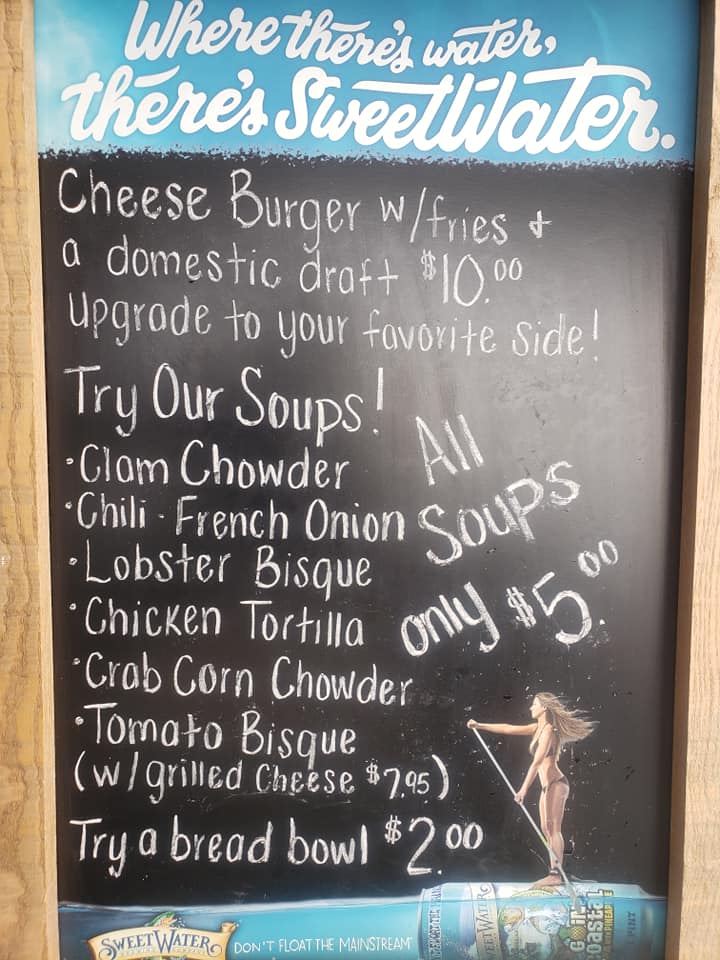 Where there's water,
there's SweetWater.
Cheese Burger w/fries +
a domestic draft $10.00
upgrade to your favorite side!
Try Our Soups!
·Clam Chowder
·Chili · French Onion
·Lobster Bisque
·Chicken Tortilla
·Crab Corn Chowder
·Tomato Bisque
(w/grilled Cheese $7.95)
All
Soups
only $5.00
Try a bread bowl $2.00
SWEETWATER
DON'T FLOAT THE MAINSTREAM
GOIN'
Coastal
PINEAPPLE
PINT